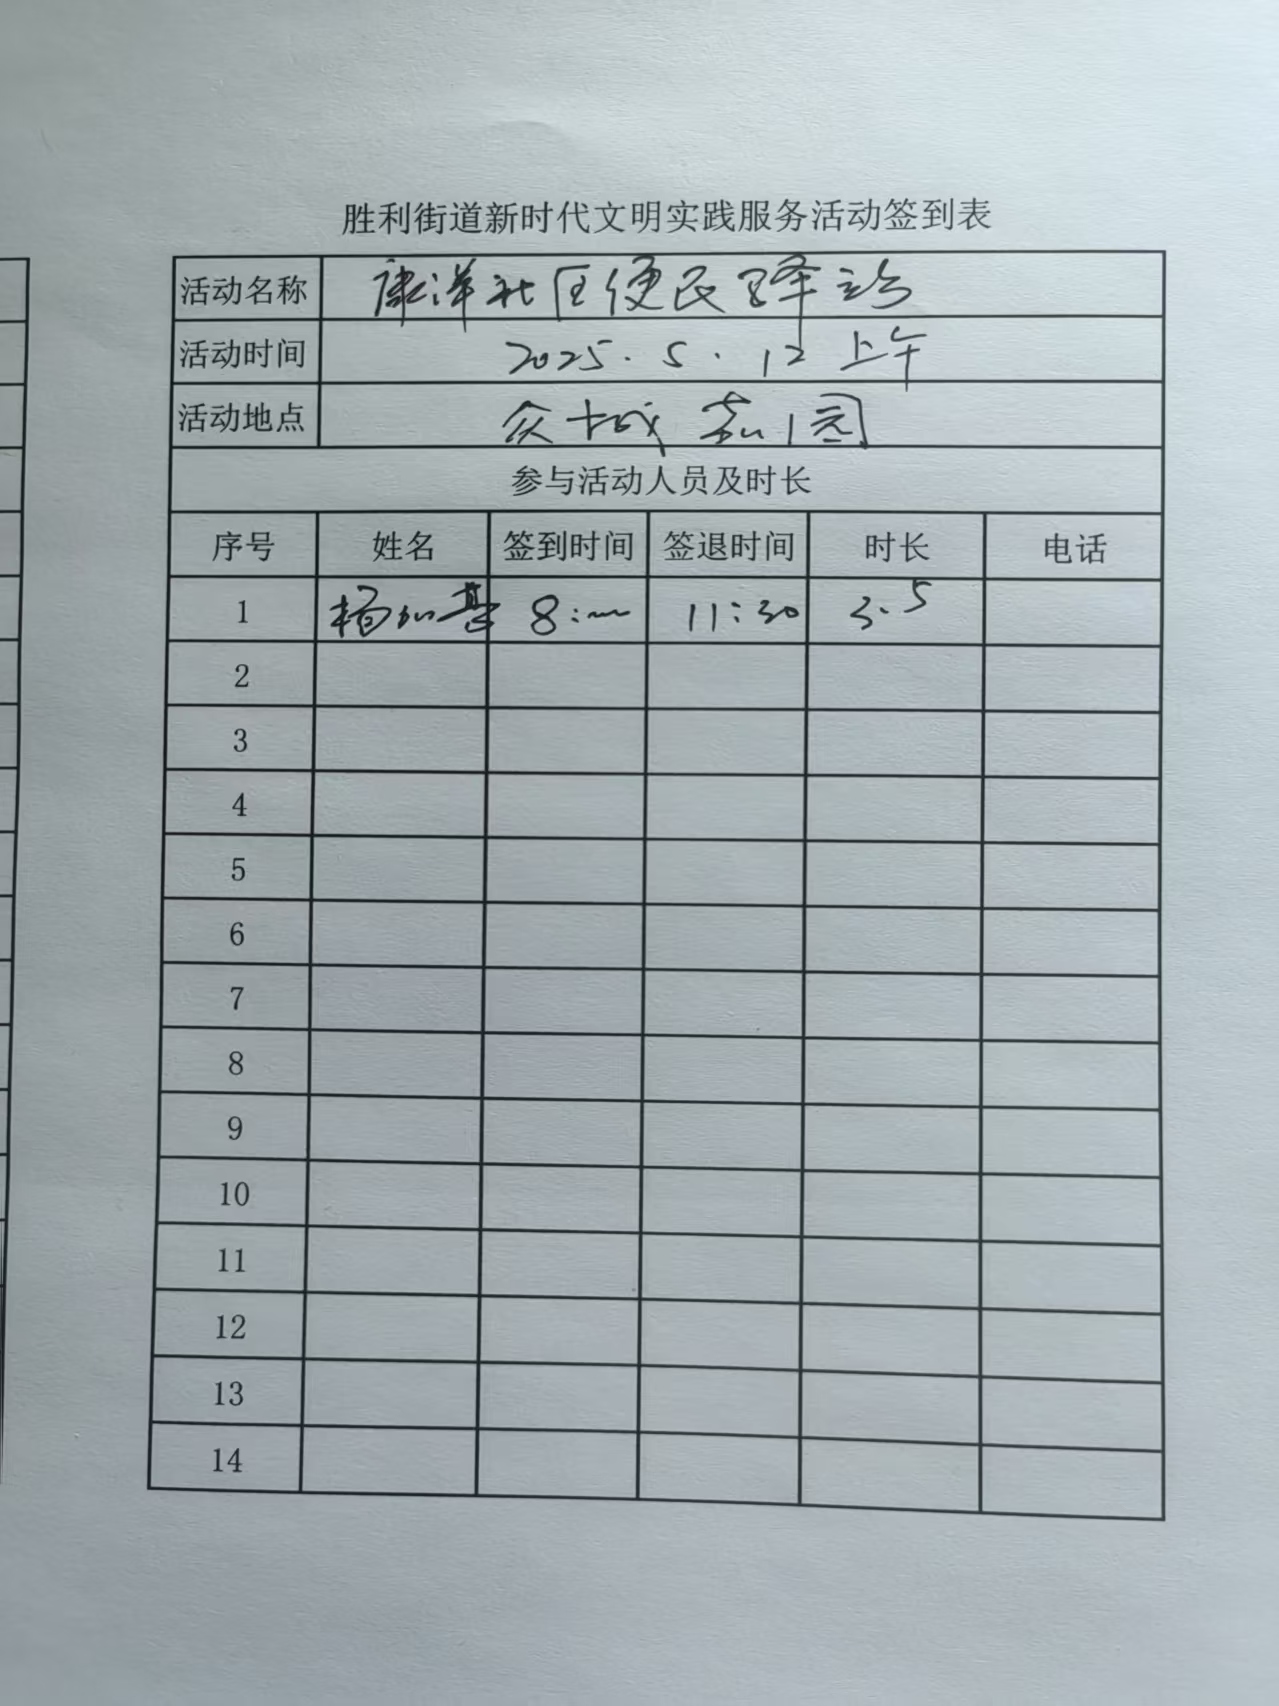 胜利街道新时代文明实践服务活动签到表
活动名称 康洋社区便民驿站
活动时间 2025.5.12 上午
活动地点 众城 园
参与活动人员及时长
序号 姓名 签到时间 签退时间 时长 电话
1 杨加基 8:00 11:30 3.5
2
3
4
5
6
7
8
9
10
11
12
13
14